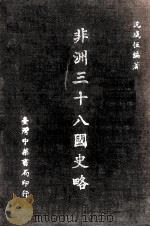 沈咸恒編著
非洲三十八國史略
臺灣中華書局印行